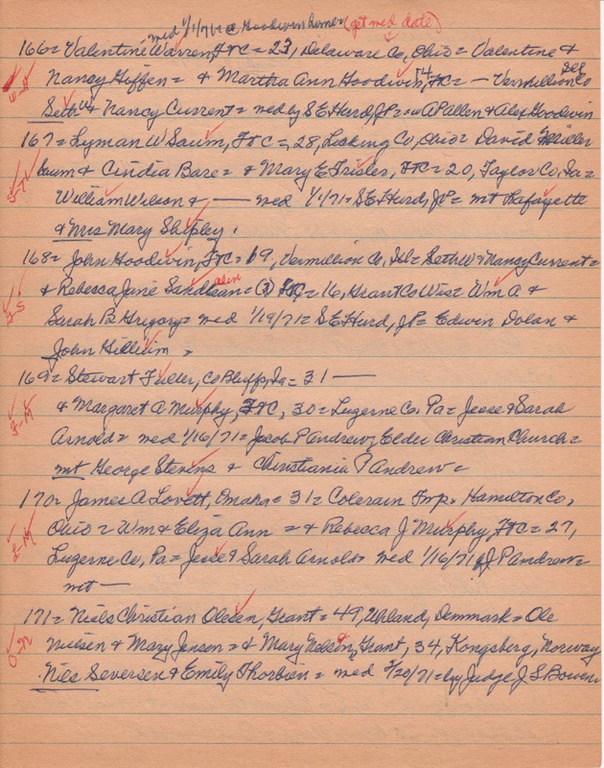 med 1/1/71 @ Goodwin home (get med date)
166 = Valentine Warren, FTC = 23, Delaware Co, Ohio = Valentine &
Nancy Giffen = & Martha Ann Goodwin, 14, FTC = — Vermillion Co
Seth W & Nancy Current = med by S E Hurd, JP = A P Allen & Alex Goodwin
W-G
167 = Lyman W Saum, FTC = 28, Licking Co, Ohio = David Miller
Saum & Cindia Bare = & Mary E Frisler, FTC = 20, Taylor Co, Ia =
S-F
William Wilson & — med 1/1/71 = S E Hurd, JP = mt Lafayette
& Mrs Mary Shipley.
168 = John Goodwin, FTC = 19, Vermillion Co, Ill = Seth W & Nancy Current =
& Rebecca Jane = 16, Grant Co Wis = Wm A &
G-S
Sarah B Gregory = med 1/19/71 = S E Hurd, JP = Edwin Dolan &
John Gilliam =
169 = Stewart Fuller, Co Bluffs, Ia = 31 —
& Margaret A Murphy, FTC, 30 = Luzerne Co. Pa = Jesse & Sarah
F-M
Arnold = med 1/16/71 = Jacob P Andrew, Elder Christian Church =
mt George Stevens & Christiania P Andrew =
170 = James A Lovett, Omaha = 31 = Colerain Twp. Hamilton Co,
Ohio = Wm & Eliza Ann = & Rebecca J Murphy, FTC = 27,
L-M
Luzerne Co, Pa = Jesse & Sarah Arnold = med 1/16/71 J P Andrew =
mt —
171 = Niels Christian Olesen, Grant = 49, Uhland, Denmark = Ole
Nielsen & Mary Jensen = & Mary Nelson, Grant, 34, Kongsberg, Norway
O-N
Nils Seversen & Emily Thorbien = med 2/20/71 = by Judge J S Bowen